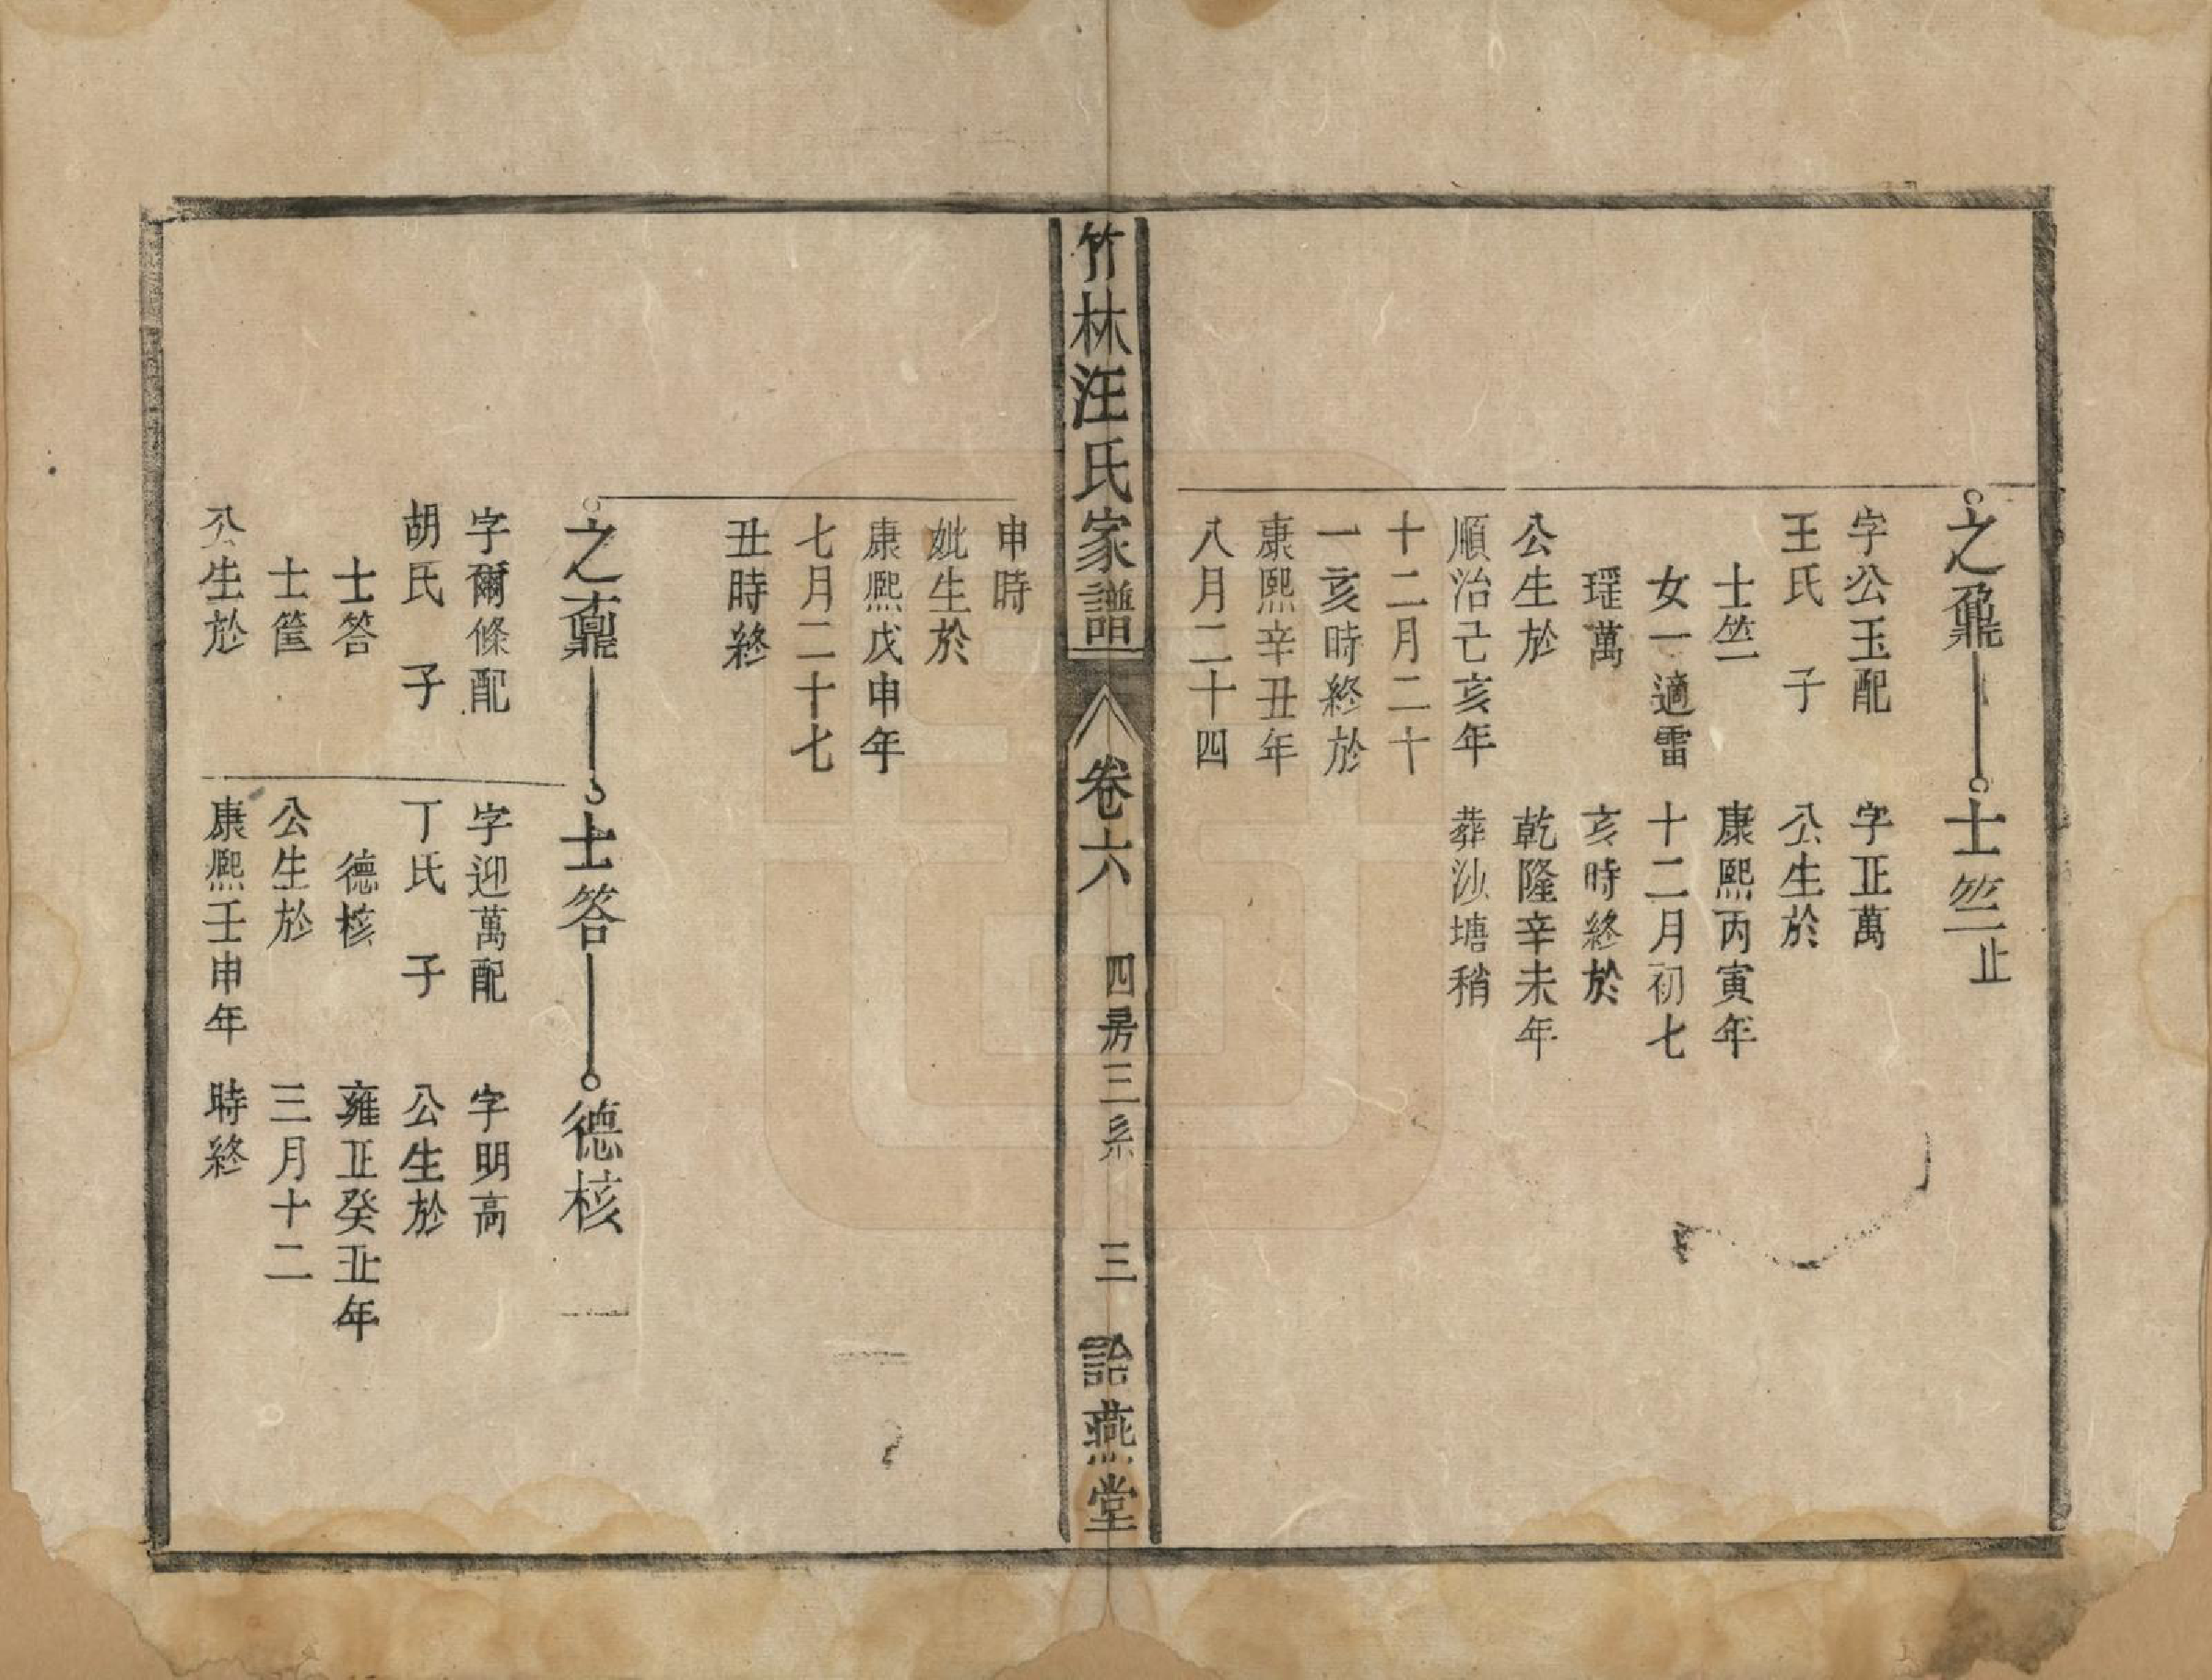 之鼐
士竺止
字公玉配
王氏 子
士竺
女一適雷
瑶萬
公生於
順治己亥年
十二月二十
一亥時終於
康熙辛丑年
八月二十四
字正萬
公生於
康熙丙寅年
十二月初七
亥時終於
乾隆辛未年
葬沙塘稍
竹林汪氏家譜
卷六
四房三系
三
詒燕堂
申時
妣生於
康熙戊申年
七月二十七
丑時終
之鼒
士答
德核
字爾條配
胡氏 子
士答
士筐
公生於
字迎萬配
丁氏 子
德核
公生於
康熙壬申年
字明高
公生於
雍正癸丑年
三月十二
時終